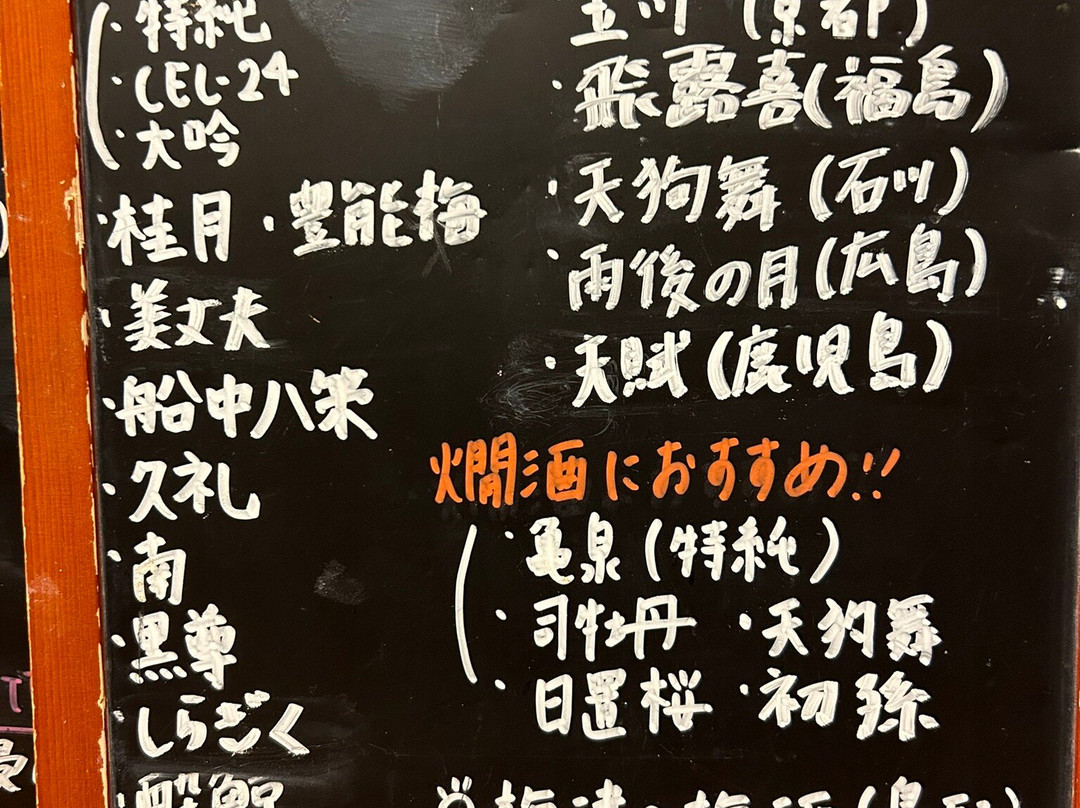 ・特純
・CEL-24
・大吟
・桂月 ・豊能梅
・美丈夫
・船中八策
・久礼
・南
・黒尊
・しらぎく
・酔鯨
玉川 (京都)
・飛露喜(福島)
・天狗舞 (石川)
・雨後の月(広島)
・天賦(鹿児島)
燗酒におすすめ!!
・亀泉(特純)
・司牡丹 ・天狗舞
・日置桜 ・初孫